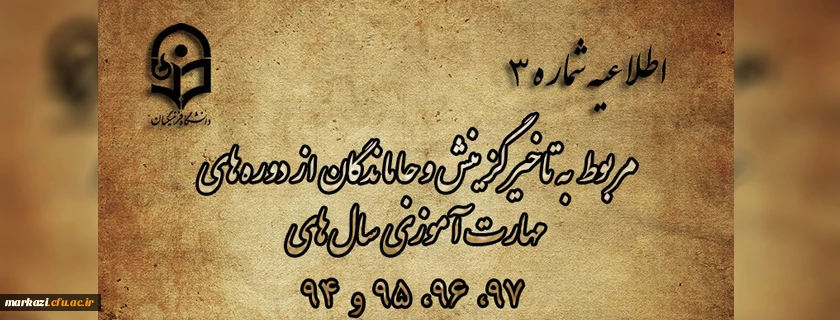 اطلاعیه شماره ۳
دانشگاه فرهنگیان
مربوط به تاخیر گزینش و جاماندگان از دوره های
مهارت آموزی سال های
۹۷، ۹۶، ۹۵ و ۹۴
markazi.cfu.ac.ir